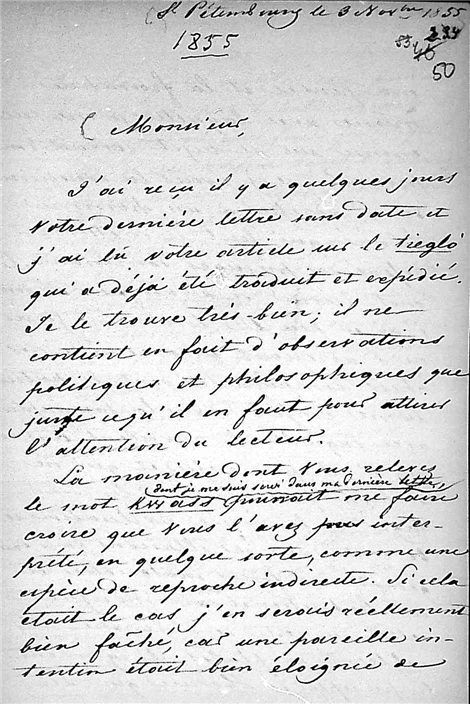 St Pétersbourg le 3 Novbre 1855
1855
50
Monsieur,
J'ai reçu il y a quelques jours
votre dernière lettre sans date et
j'ai lû votre article sur le tieglo
qui a déjà été traduit et expédié.
Je le trouve très-bien; il ne
contient en fait d'observations
politiques et philosophiques que
juste ce qu'il en faut pour attirer
l'attention du lecteur.
La manière dont vous relevez
dont je me suis servi dans ma dernière lettre,
le mot kwass pourrait me faire
croire que vous l'avez inter-
prété, en quelque sorte, comme une
espèce de reproche indirecte. Si cela
était le cas j'en serais réellement
bien fâché, car une pareille in-
tention était bien éloignée de